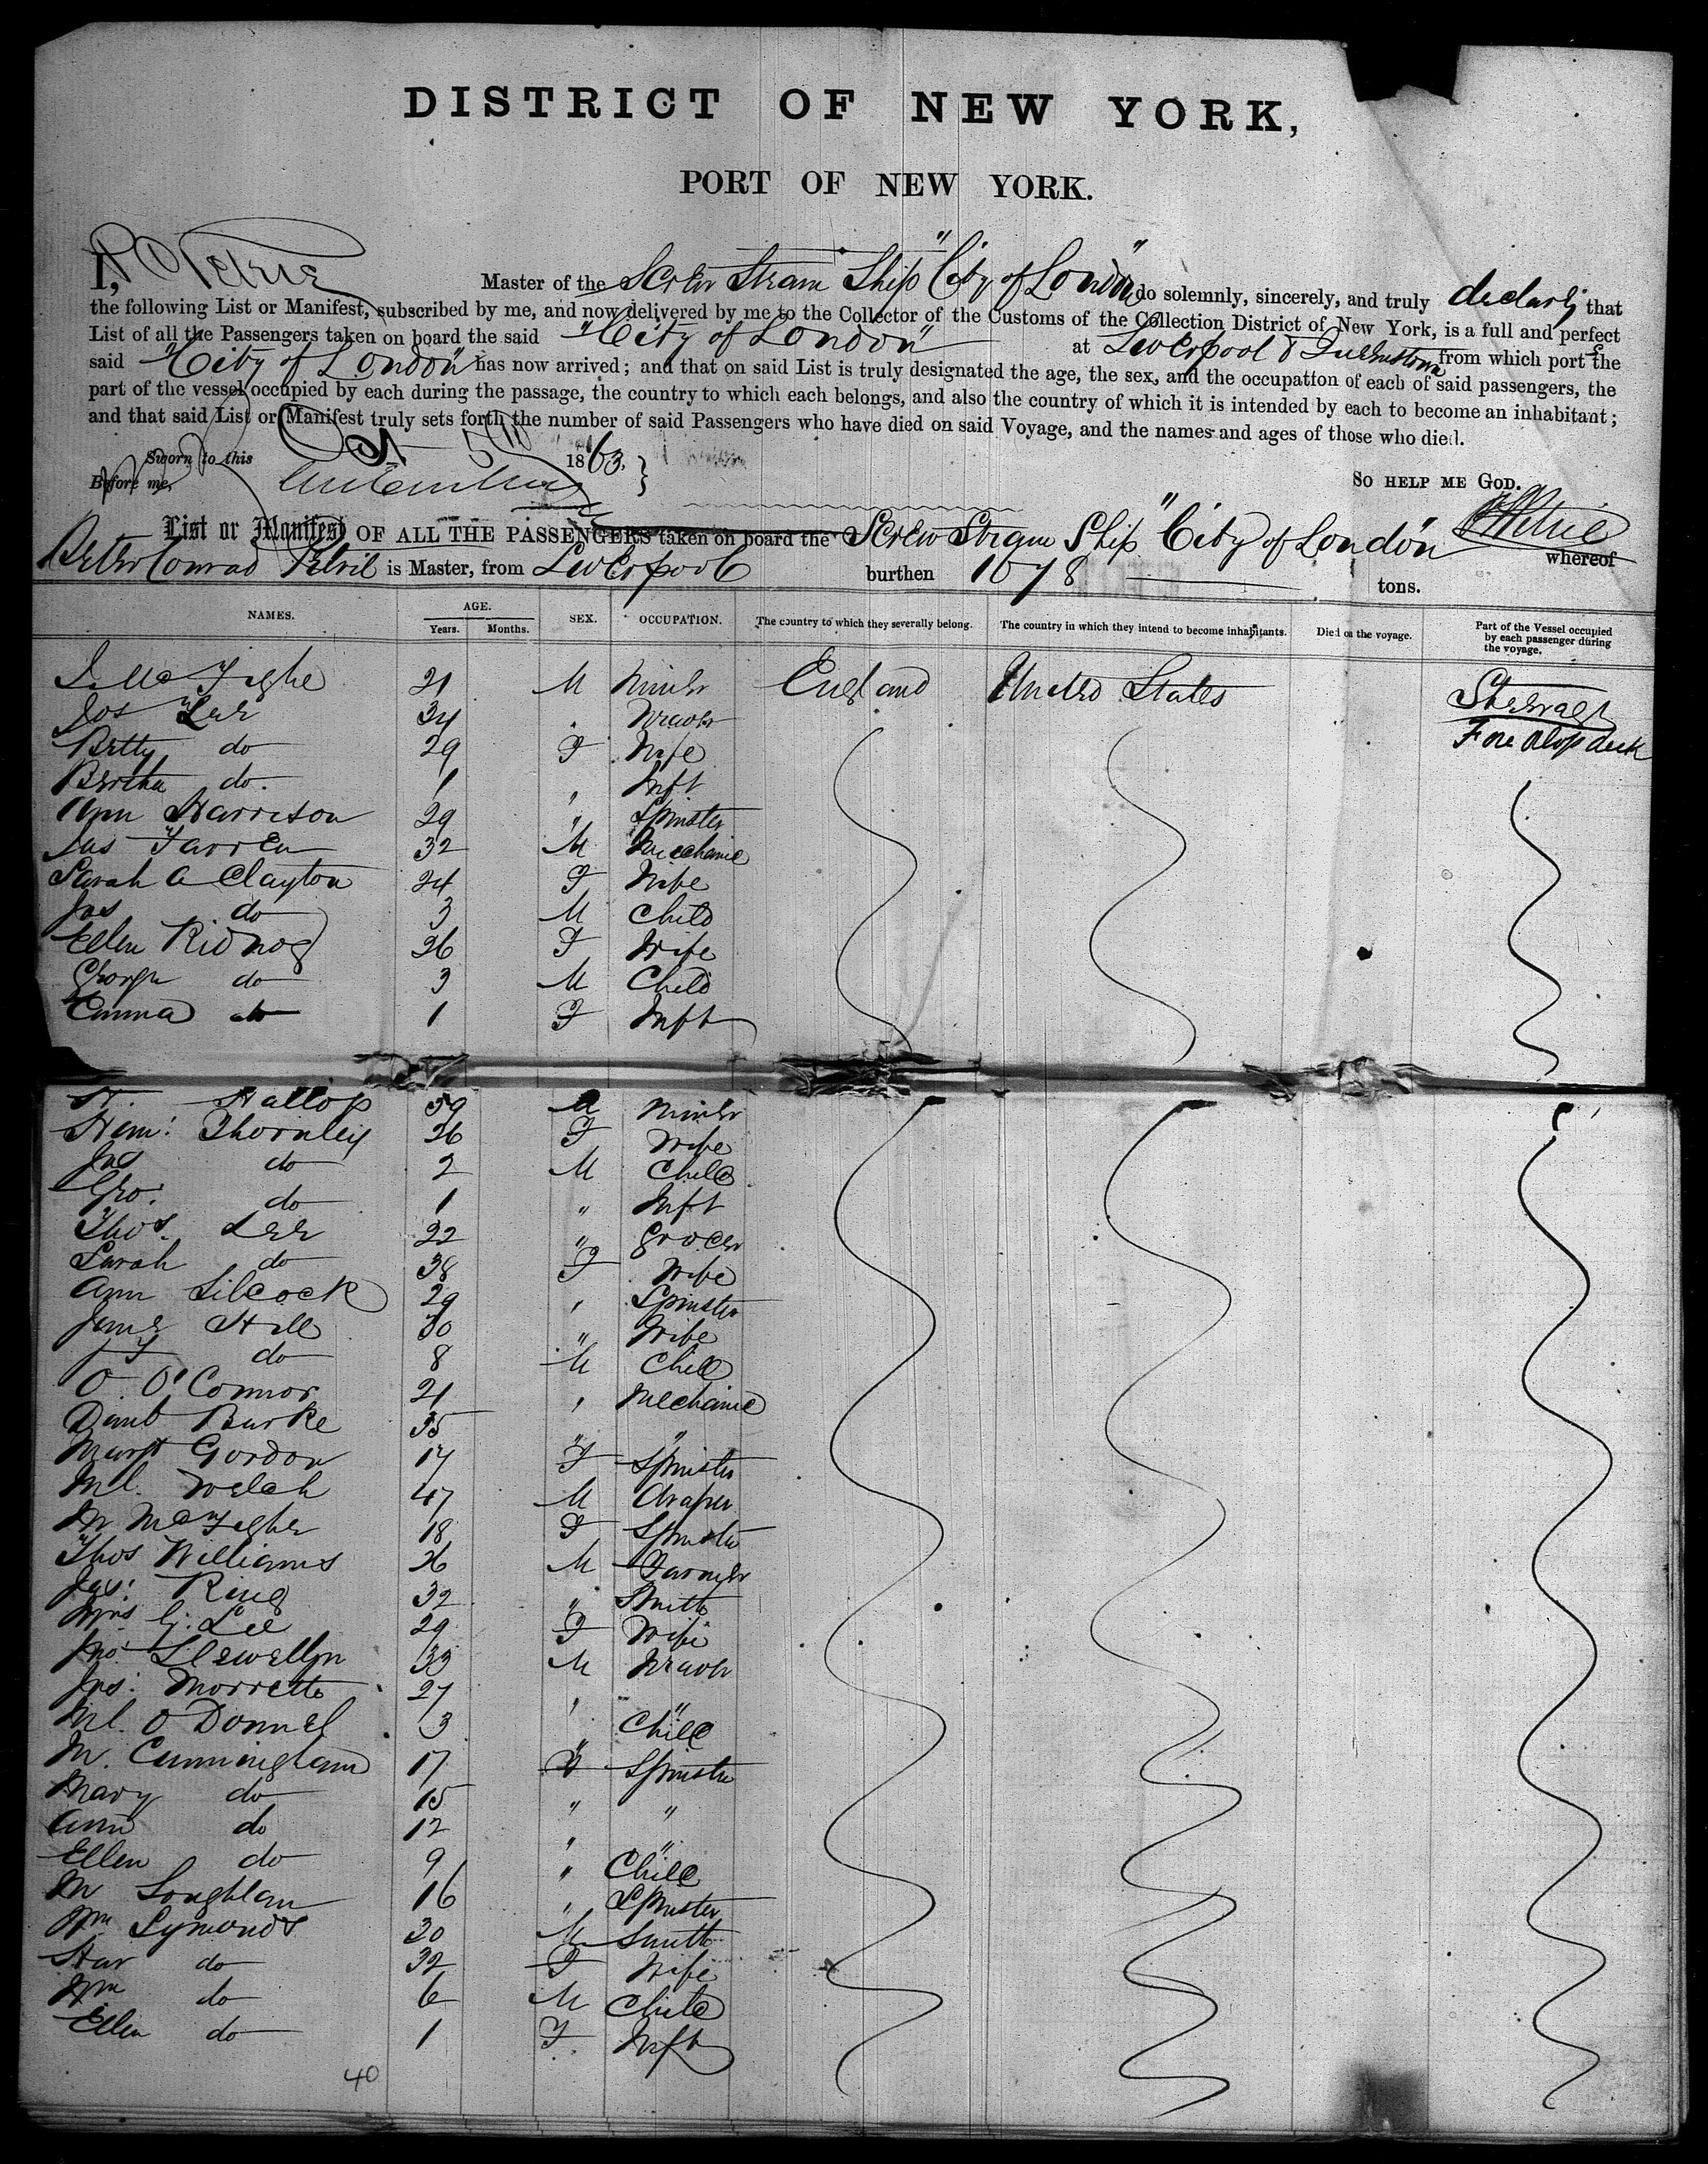 DISTRICT OF NEW YORK,
PORT OF NEW YORK.
I, P C Petrie Master of the Screw Steam Ship "City of London" do solemnly, sincerely, and truly declare that
the following List or Manifest, subscribed by me, and now delivered by me to the Collector of the Customs of the Collection District of New York, is a full and perfect
List of all the Passengers taken on board the said "City of London" at Liverpool & Queenstown from which port the
said "City of London" has now arrived; and that on said List is truly designated the age, the sex, and the occupation of each of said passengers, the
part of the vessel occupied by each during the passage, the country to which each belongs, and also the country of which it is intended by each to become an inhabitant;
and that said List or Manifest truly sets forth the number of said Passengers who have died on said Voyage, and the names and ages of those who died.
Sworn to this 1863.
Before me, So HELP ME GOD.
List or Manifest OF ALL THE PASSENGERS taken on board the Screw Steam Ship "City of London" whereof
Peter Conrad Petrie is Master, from Liverpool burthen 1678 tons.
NAMES. AGE. Years. Months. SEX. OCCUPATION. The country to which they severally belong. The country in which they intend to become inhabitants. Died on the voyage. Part of the Vessel occupied by each passenger during the voyage.
McTighe 21 M Miner England United States Steerage
Jos Lee 34 Weaver Fore Orlop deck
Betty do 29 F Wife
Bertha do. 1 " Inft
Ann Harrison 29 " Spinster
Jas Farren 32 M Mechanic
Sarah A Clayton 24 F Wife
Jas do 3 M Child
Ellen Ridnog 26 F Wife
George do 3 M Child
Emma do 1 F Inft
H. Hallop 59 M Miner
Hem: Thornley 26 F Wife
Jas do 2 M Child
Geo: do 1 " Inft
Thos. Lee 22 " Grocer
Sarah do 38 F Wife
Ann Silcock 29 " Spinster
Jane Hill 30 " Wife
do 8 M Child
O. O'Connor 21 " Mechanic
Danl Burke 35 " "
Margt Gordon 17 F Spinster
Ml. Welch 47 M draper
M McTeghe 18 F Spinster
Thos Williams 26 M Farmer
Jas: King 32 " Smith
Mrs G. Lee 29 F Wife
Jno. Llewellyn 33 M Weaver
Jas: Morretto 27 " "
Ml. O Donnel 3 " Child
M. Cunningham 17 F Spinster
Mary do 15 " "
Ann do 12 " "
Ellen do 9 " Child
M Loughlan 16 " Spinster
Wm Symonds 30 M Smith
Har do 32 F Wife
Wm do 6 M Child
Ellen do 1 F Inft
40